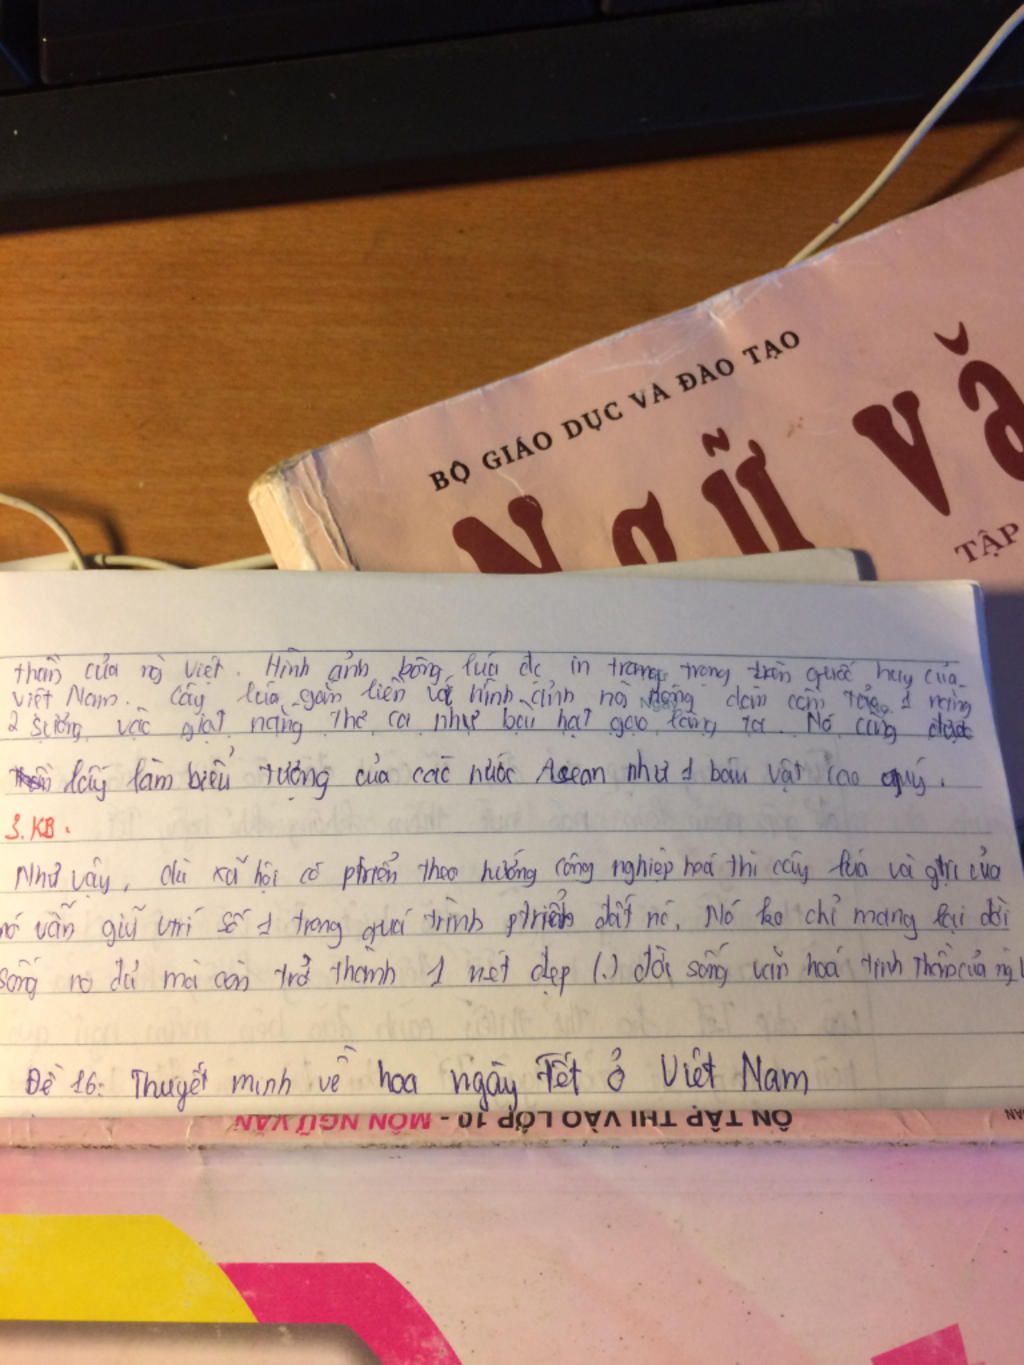 BỘ GIÁO DỤC VÀ ĐÀO TẠO
Ngữ Vă
TẬP
thần của ng Việt. Hình ảnh bông lúa đc in trang trọng trên quốc huy của
Việt Nam. Cây lúa gắn liền với hình ảnh ng nông dân cần tảo 1 nắng
2 sương vác giọt nặng thế có như bầu hạt gạo tảng ta. Nó cũng được
lấy làm biểu tượng của các nước Asean như 1 báu vật cao quý.
3. KB.
Như vậy, dù xã hội có ptriển theo hướng công nghiệp hoá thì cây lúa và gtrị của
nó vẫn giữ vtrí số 1 trong quá trình ptriển đất nc. Nó ko chỉ mang lại đời
sống no đủ mà còn trở thành 1 nét đẹp (.) đời sống văn hoá tinh thần của ng
Đề 16: Thuyết minh về hoa ngày Tết ở Việt Nam
ÔN TẬP THI VÀO LỚP 10 - MÔN NGỮ VĂN